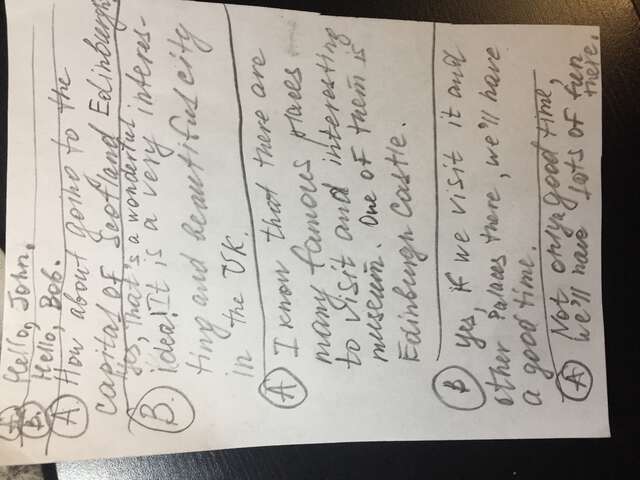 A. Hello, John.
B. Hello, Bob.
A. How about going to the
capital of Scotland Edinburgh.
B. Yes, That's a wonderful
idea! It is a very interes-
ting and beautiful city
in the UK.
A I know that there are
many famous places
to visit and interesting
museum. One of them is
Edinburgh Castle.
B Yes, if we visit it and
other Palaces there, we'll have
a good time.
A Not only a good time,
we'll have lots of fun
there.